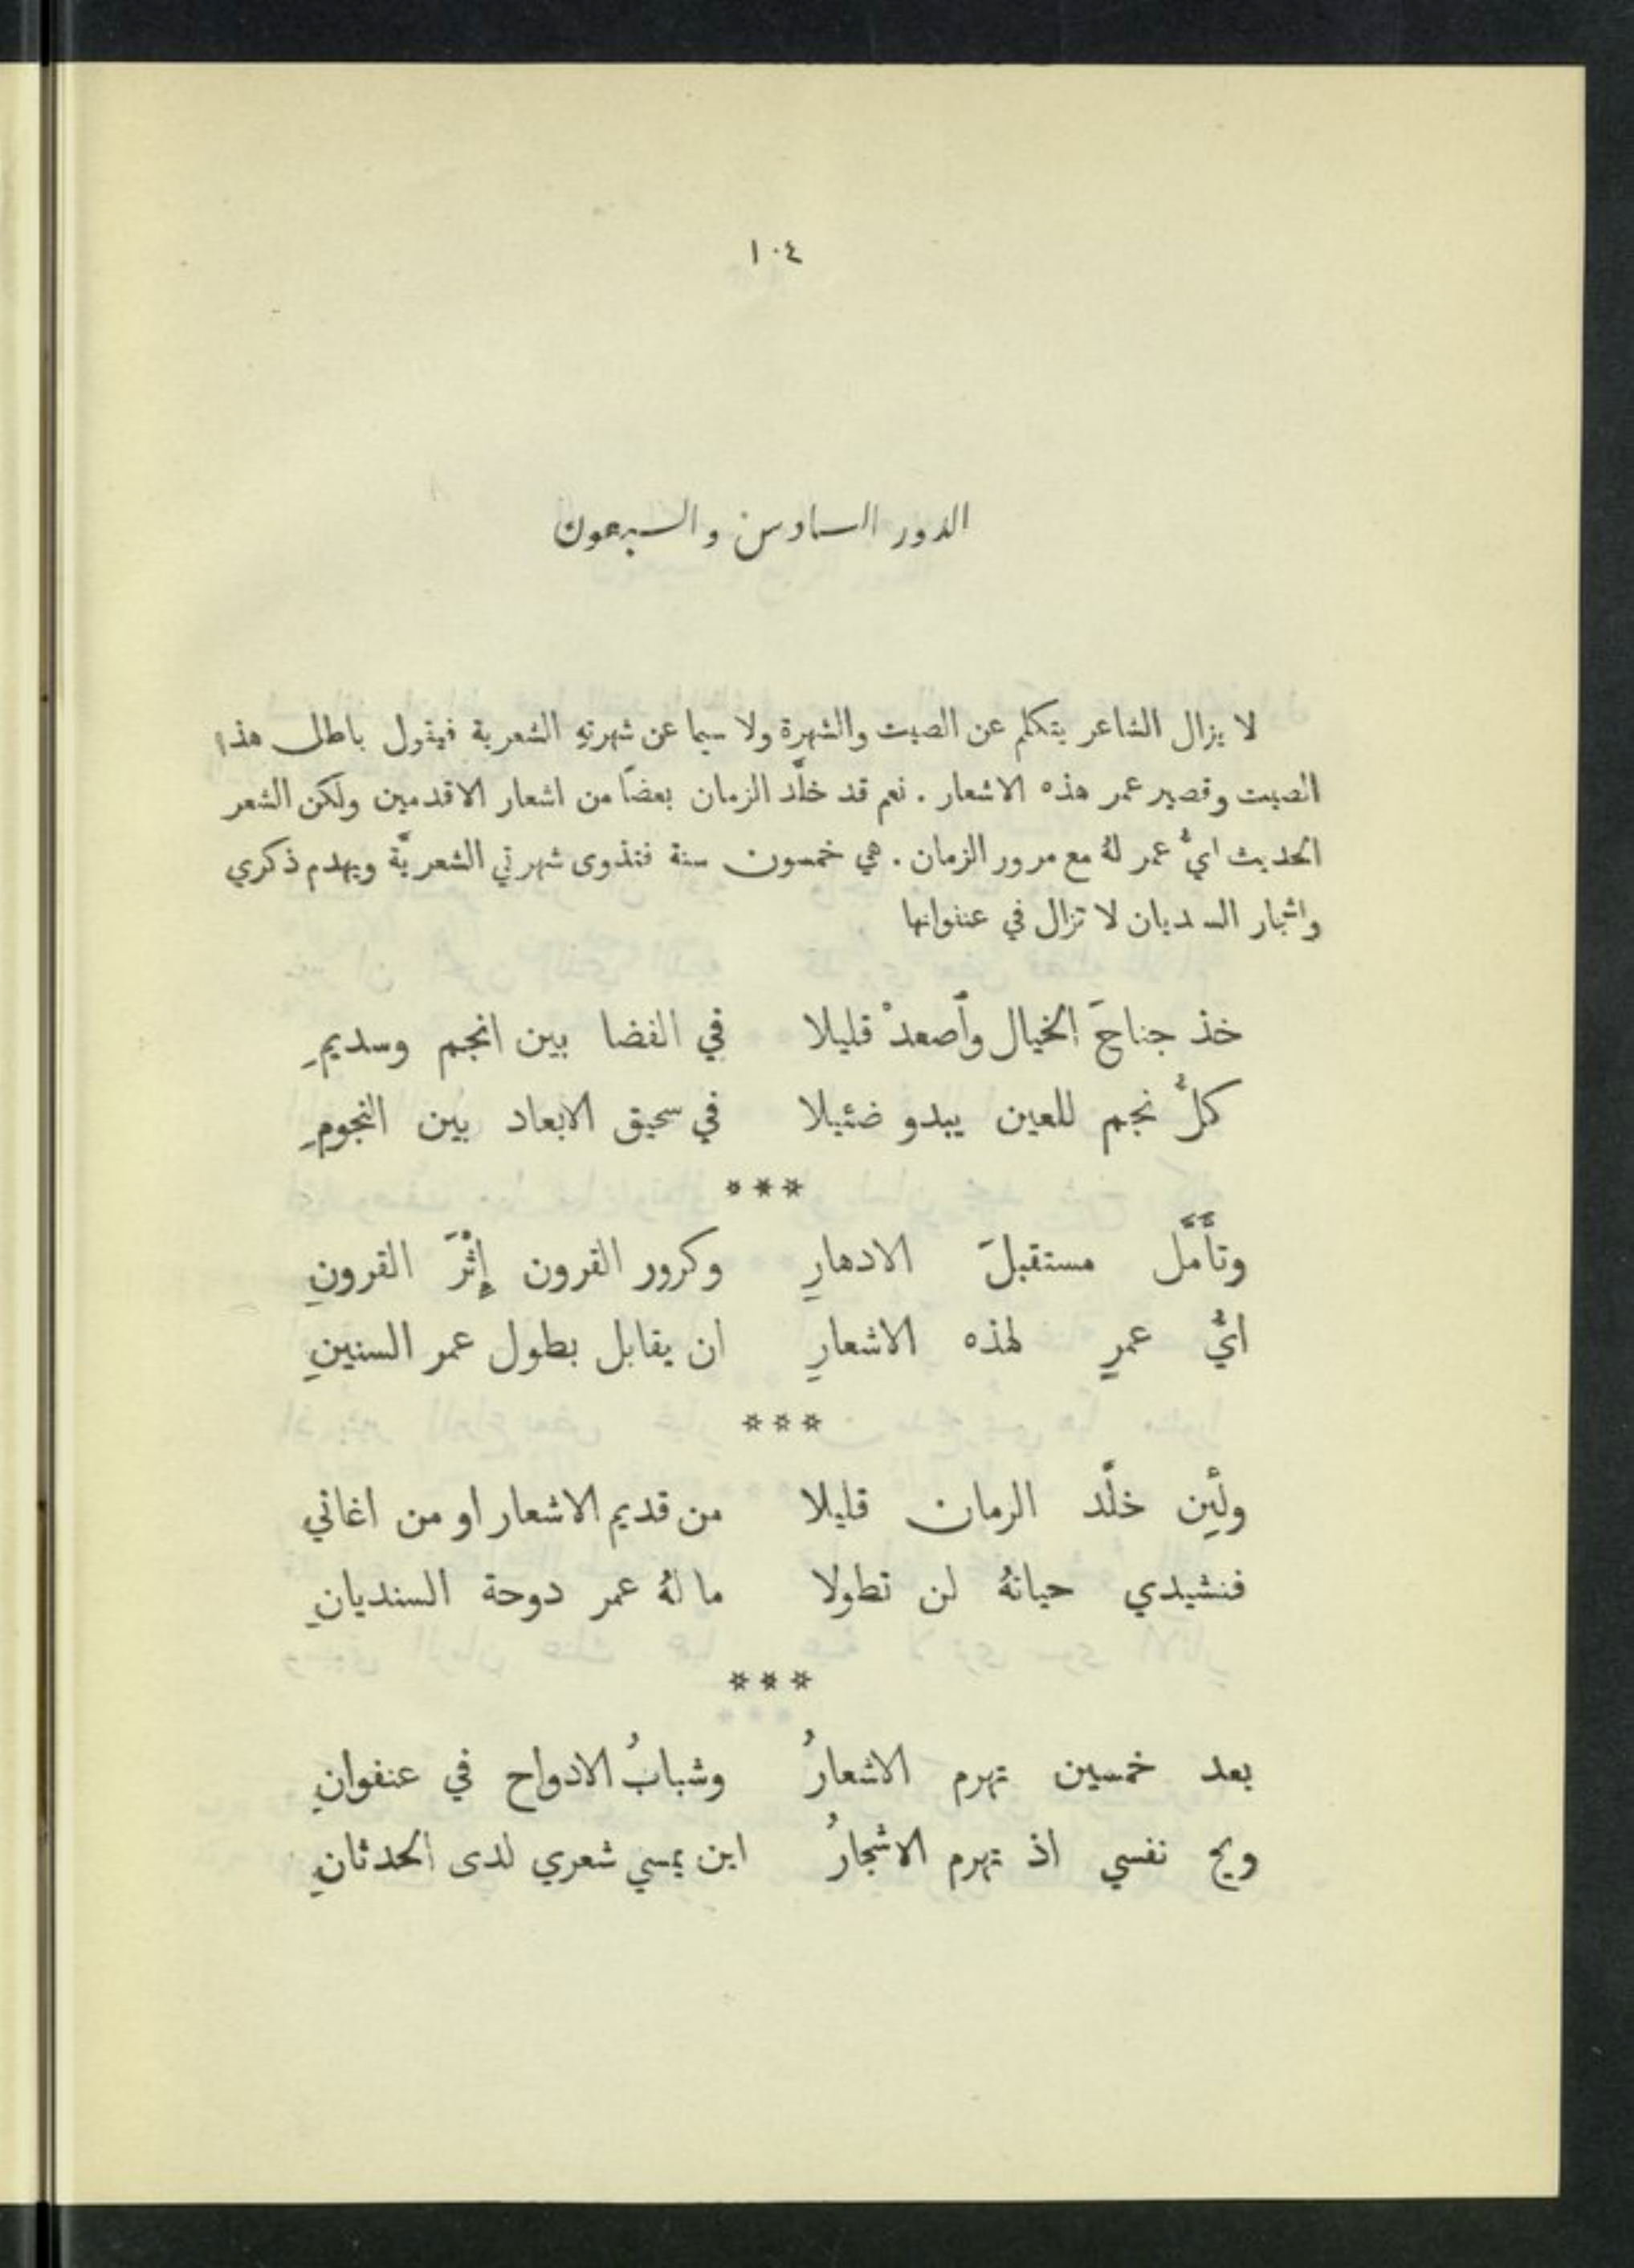 ١٠٤
الدور السادس والسبعون
لا يزال الشاعر يتكلم عن الصيت والشهرة ولا سيما عن شهرتهِ الشعرية فيقول باطل هذا
الصيت وقصير عمر هذه الاشعار . نعم قد خلَّد الزمان بعضًا من اشعار الاقدمين ولكن الشعر
الحديث ايُّ عمر لهُ مع مرور الزمان . هي خمسون سنة فتذوى شهرتي الشعريَّة ويهدم ذكري
واشجار السنديان لا تزال في عنفوانها
خذ جناحَ الخيال وٱصعدْ قليلا في الفضا بين انجم وسديمِ
كلُّ نجم للعين يبدو ضئيلا في سحيق الابعاد بين النجومِ
***
وتأَمَّل مستقبلَ الادهارِ وكرور القرون إِثْرَ القرونِ
ايُّ عمرٍ لهذه الاشعارِ ان يقابل بطول عمر السنينِ
***
ولئِن خلَّد الزمان قليلا من قديم الاشعار او من اغاني
فنشيدي حياتهُ لن تطولا ما لهُ عمر دوحة السنديانِ
***
بعد خمسين تهرم الاشعارُ وشبابُ الادواح في عنفوانِ
ويح نفسي اذ تهرم الاشجارُ اين يمسي شعري لدى الحدثانِ